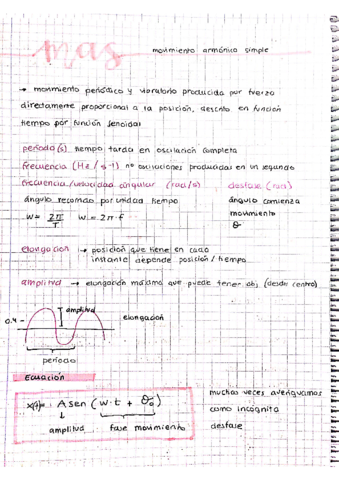 mas
movimiento armónico simple
→ movimiento periódico y vibratorio producida por fuerza
directamente proporcional a la posición, descrito en función
tiempo por función senoidal
período(s) tiempo tarda en oscilación completa
frecuencia (Hz / s-1) nº oscilaciones producidas en un segundo
frecuencia/velocidad angular (rad/s) desfase (rad)
ángulo recorrido por unidad tiempo ángulo comienza
movimiento
w = 2π/T w = 2π·f θ
elongación → posición que tiene en cada
instante depende posición / tiempo
amplitud → elongación máxima que puede tener obj (desde centro)
amplitud
0.4 elongación
período
Ecuación
x(t) = A sen (w·t + θ₀)
amplitud fase movimiento
muchas veces averiguamos
como incógnita
desfase